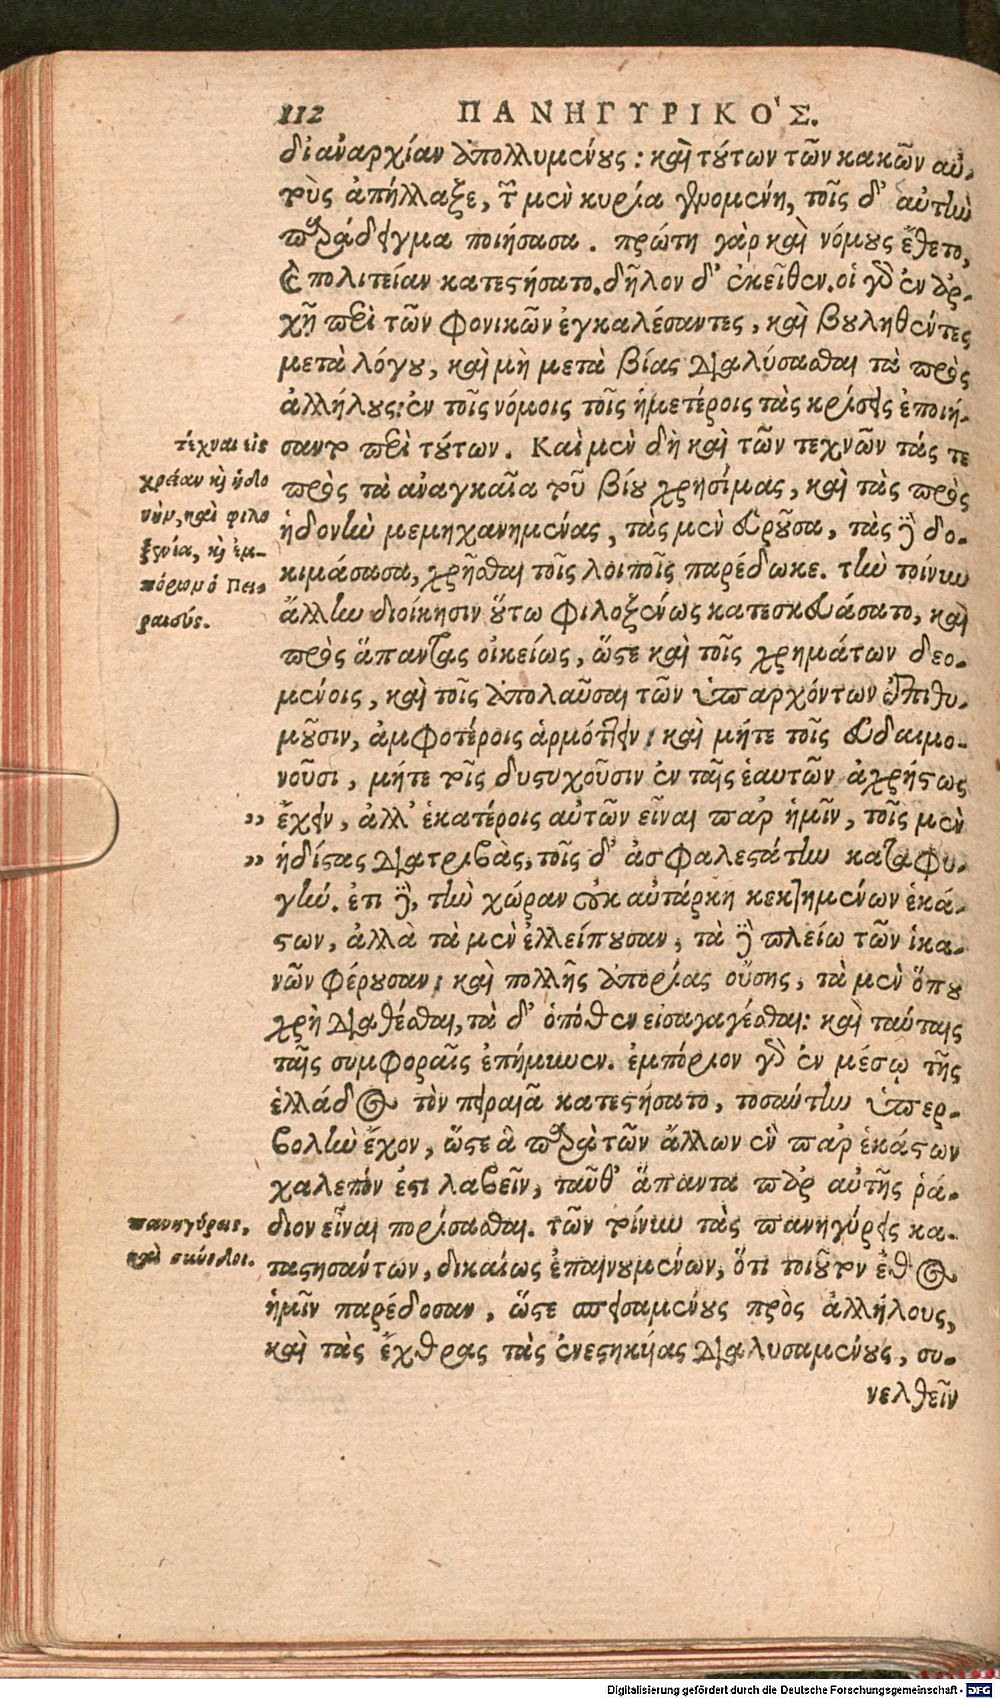 112 ΠΑΝΗΓΥΡΙΚΟ'Σ.
δι' ἀναρχίαν ἀπολλυμένους : καὶ τούτων τῶν κακῶν αὐ-
τοὺς ἀπήλλαξε, τῶν μὲν κυρία γενομένη, τοῖς δ' αὑτὴν
παράδειγμα ποιήσασα . πρώτη γὰρ καὶ νόμους ἔθετο,
καὶ πολιτείαν κατεστήσατο. δῆλον δ' ἐκεῖθεν. οἱ γὰρ ἐν ἀρ-
χῇ περὶ τῶν φονικῶν ἐγκαλέσαντες, καὶ βουληθέντες
μετὰ λόγου, καὶ μὴ μετὰ βίας διαλύσασθαι τὰ πρὸς
ἀλλήλους: ἐν τοῖς νόμοις τοῖς ἡμετέροις τὰς κρίσεις ἐποιή-
σαντο περὶ τούτων. Καὶ μὲν δὴ καὶ τῶν τεχνῶν τάς τε
πρὸς τὰ ἀναγκαῖα τοῦ βίου χρησίμας, καὶ τὰς πρὸς
ἡδονὴν μεμηχανημένας, τὰς μὲν εὑροῦσα, τὰς δὲ δο-
κιμάσασα, χρῆσθαι τοῖς λοιποῖς παρέδωκε. τὴν τοίνυν
ἄλλην διοίκησιν οὕτω φιλοξένως κατεσκευάσατο, καὶ
πρὸς ἅπαντας οἰκείως, ὥστε καὶ τοῖς χρημάτων δεο-
μένοις, καὶ τοῖς ἀπολαῦσαι τῶν ὑπαρχόντων ἐπιθυ-
μοῦσιν, ἀμφοτέροις ἁρμόττειν; καὶ μήτε τοῖς εὐδαιμο-
νοῦσι, μήτε τοῖς δυστυχοῦσιν ἐν ταῖς ἑαυτῶν ἀχρήστως
" ἔχειν, ἀλλ' ἑκατέροις αὐτῶν εἶναι παρ' ἡμῖν, τοῖς μὲν
" ἡδίστας διατριβὰς, τοῖς δ' ἀσφαλεστάτην καταφυ-
γήν. ἐπι δὲ, τὴν χώραν οὐκ αὐτάρκη κεκτημένων ἑκά-
στων, ἀλλὰ τὰ μὲν ἐλλείπουσαν, τὰ δὲ πλείω τῶν ἱκα-
νῶν φέρουσαν; καὶ πολλῆς ἀπορίας οὔσης, τὰ μὲν ὅπου
χρὴ διαθέσθαι, τὰ δ' ὁπόθεν εἰσαγαγέσθαι: καὶ ταύταις
ταῖς συμφοραῖς ἐπήμυνεν. ἐμπόριον γὰρ ἐν μέσῳ τῆς
ἑλλάδος τὸν πειραιᾶ κατεστήσατο, τοσαύτην ὑπερ-
βολὴν ἔχον, ὥστε ἃ παρὰ τῶν ἄλλων ἓν παρ' ἑκάστων
χαλεπόν ἐστι λαβεῖν, ταῦθ' ἅπαντα παρ' αὐτῆς ῥά-
διον εἶναι πορίσασθαι. τῶν τοίνυν τὰς πανηγύρεις κα-
ταστησάντων, δικαίως ἐπαινουμένων, ὅτι τοιοῦτον ἔθος
ἡμῖν παρέδοσαν, ὥστε σπεισαμένους πρὸς ἀλλήλους,
καὶ τὰς ἔχθρας τὰς ἐνεστηκυίας διαλυσαμένους, συ-
νελθεῖν
τέχναι εἰς
χρείαν καὶ ἡδο
νὴν, καὶ φιλο
ξενία, καὶ ἐμ-
πόριον ὁ Πει-
ραιεύς.
πανηγύρεις,
Digitalisierung gefördert durch die Deutsche Forschungsgemeinschaft - DFG